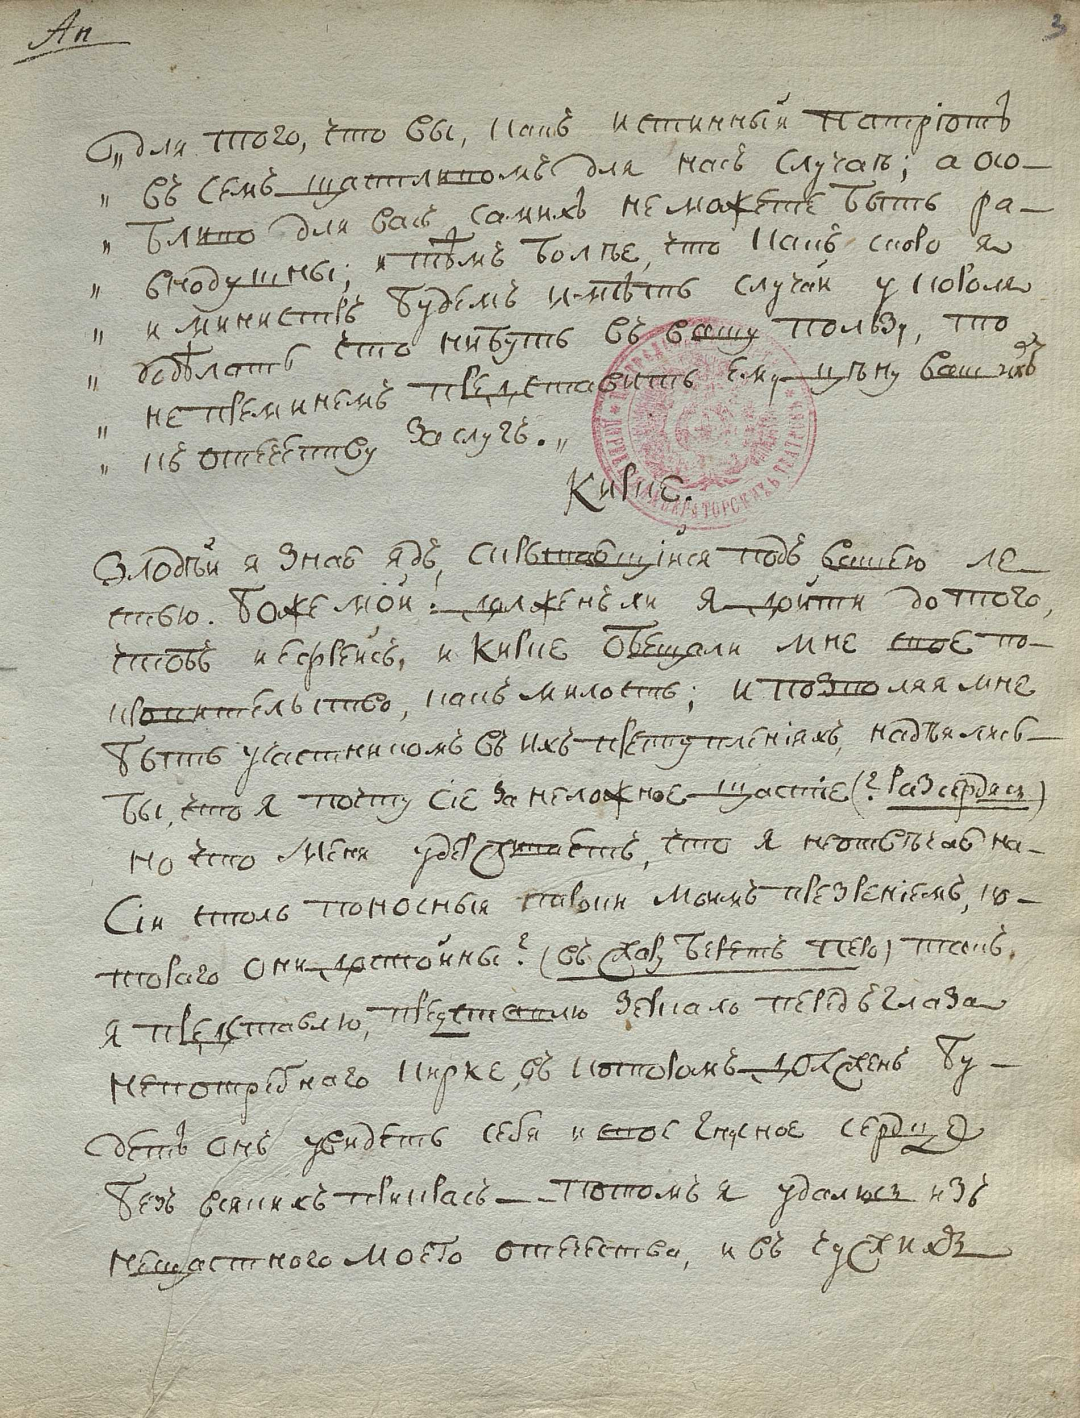 Ап
3
„ для того, что вы, какъ истинный патріотъ
„ въ семъ щастливомъ для насъ случаѣ; а осо-
„ бливо для васъ самихъ неможете быть ра-
„ внодушны; и тѣмъ болѣе, что какъ скоро я
„ и министръ будемъ имѣть случай у короля
„ здѣлать что нибуть въ вашу пользу, то
„ не преминемъ представить ему цѣну вашихъ
„ къ отечеству заслугъ. „
Кирке.
Злодѣй я знаю ядъ, скрывающійся подъ вашею ле-
стью. Боже мой! долженъ ли я дойти до того,
чтобъ и Бервикъ, и Кирке обещали мне свое по-
кровительство, какъ милость; и позволяя мне
быть участникомъ въ ихъ преступленіяхъ, надѣялись
бы, что я почту сіе за неложное щастіе (: разсердясь)
но что меня удерживаетъ, что я неответчаю на-
Сіи столь поносныя строки моимъ презреніемъ, ко-
тораго они достойны? (въ беретъ перо) такъ,
я представлю, представлю зеркало передъ глаза
непотребнаго Кирке, въ которомъ долженъ бу-
детъ онъ увидеть себя и свое гнусное сердце
безъ всякихъ прикрасъ - - потомъ я удалюсь изъ
нещастного моего отечества, и въ чужихъ